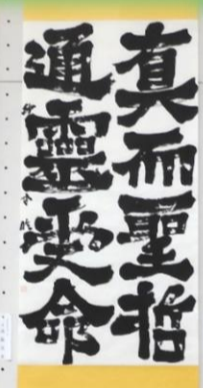 真而聖哲
通靈受命